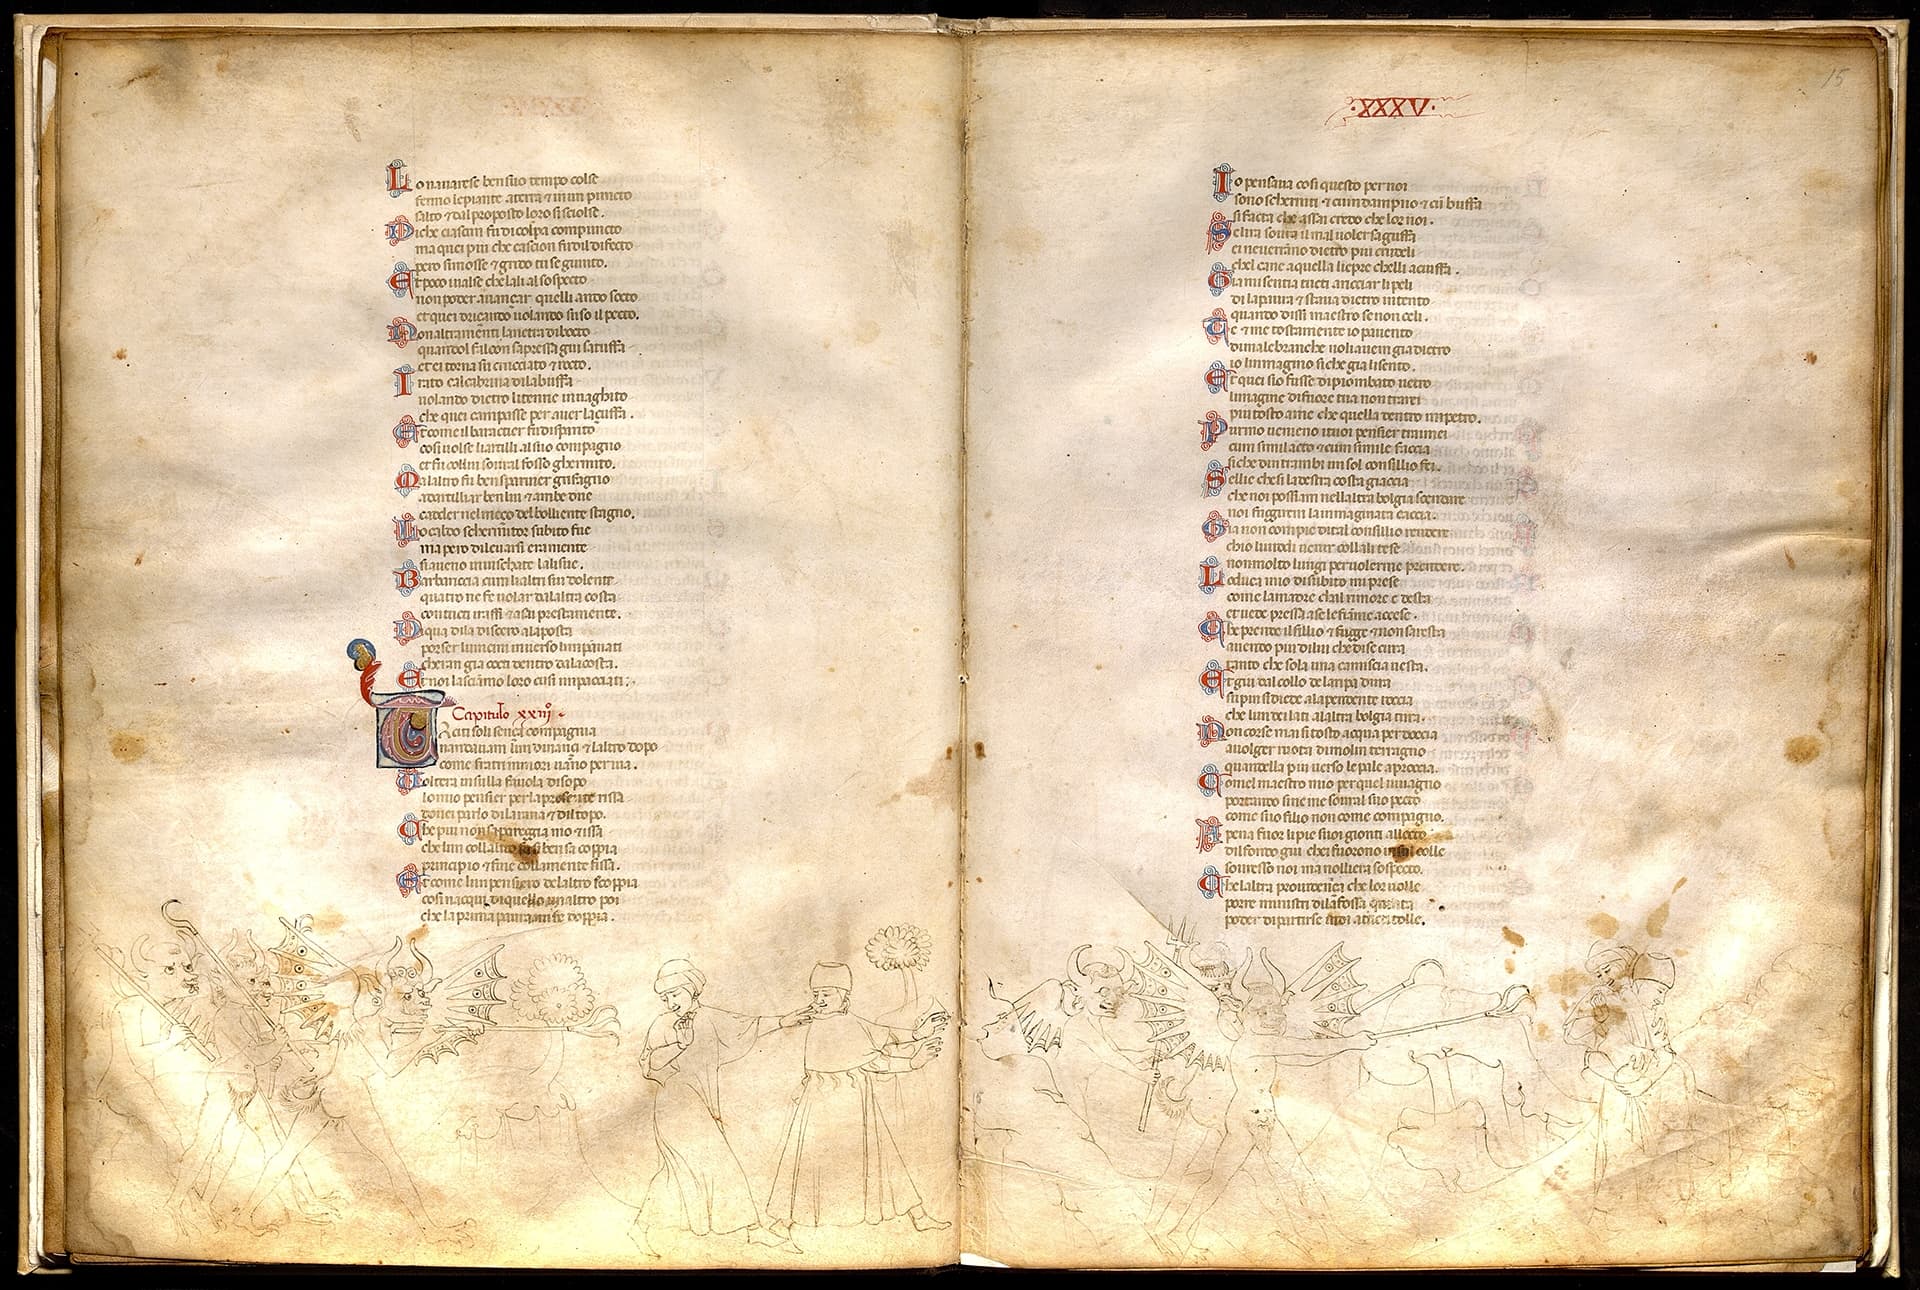 Lo nauarese ben suo tempo colse
fermo le piante a terra ⁊ in un puncto
salto ⁊ dal proposto loro si sciolse.
Di che ciascun fu di colpa compuncto
ma quei piu che cascion fu dil difecto
pero si mosse ⁊ grido tu se giunto.
Et poco i ualse che lali al sospecto
non poter auançar quelli ando socto
et quei driçando uolando suso il pecto.
Non altramenti lanetra di bocto
quandol falcon sapressa giu satuffa
et ei torna su crucciato ⁊ rocto.
Irato calcabrina di la buffa
uolando dietro li tenne inuaghito
che quei campasse per auer la çuffa.
Et come il baractier fu disparito
cosi uolse li artilli al suo compagno
et fu collui soural fosso ghermito.
Ma laltro fu ben sparuier grifagno
ad artilliar ben lui ⁊ ambe due
cadder nel meço del bolliente stagno.
Lo caldo schermitor subito fue
ma pero di leuarsi era niente
si aueno inuischate lali sue.
Barbariccia cum li altri suoi dolente
quatro ne fe uolar dalaltra costa
con tucti i raffi ⁊ assai prestamente.
Di qua di la disceser a la posta
porser li uncini inuerso li impaniati
cheran gia cocti dentro da la crosta.
Et noi lasciamo loro cusi impacciati.
Capitulo xxiiiº
Taciti soli sença compagnia
nandauam lun dinançi ⁊ laltro dopo
come frati minori uanno per uia.
Volto era in sulla fauola disopo
lo mio pensier per la presente rissa
douei parlo di la rana ⁊ dil topo.
Che piu non si pareggia mo ⁊ issa
che lun collaltro fa si ben sa coppia
principio ⁊ fine colla mente fissa.
Et come lun pensiero de laltro scoppia
cosi nacqui di quello un altro poi
che la prima paura mi fe doppia.
·XXXV·
15
Io pensaua cosi questo per noi
sono scherniti ⁊ cum dampno ⁊ cũ buffa
si facta che assai credo che lor noi.
Se lira soural mal uoler saguffa
ei ne uerrano dietro piu crudeli
chel cane a quella liepre chelli acciuffa.
Gia mi sentia tucti aricciar li peli
di la paura ⁊ staua dietro intento
quando dissi maestro se non celi.
Te ⁊ me tostamente io pauento
di malebranche noi li auem gia dietro
io li immagino si che gia li sento.
Et quei sio fusse di piombato uetro
limagine di fuore tua non trarei
piu tosto ame che quella dentro impetro.
Pur mo uenieno i tuoi pensier tra miei
cum simil acto ⁊ cum simile faccia
si che dintrambi un sol consillio fei.
Sellie che si la destra costa giaccia
che noi possiam nellaltra bolgia scendere
noi fuggirem la immaginata caccia.
Gia non compie di tal consillio rendere
chio li uidi uenir coll ali tese
non molto lungi per uolerne prendere.
Lo duca mio di subito mi prese
come la madre chal rimore e desta
et uede pressa a se le fiamme accese.
Che prende il fillio ⁊ fugge ⁊ non saresta
auendo piu di lui che di se cura
tanto che sola una camiscia uesta.
Et giu dal collo de la ripa dura
supin si diede a la pendente roccia
che lun dei lati a laltra bolgia tura.
Non corse mai si tosto acqua per doccia
a uolger ruota di molin terragno
quandella piu uerso le pale aproccia.
Comel maestro mio per quel uiuagno
portando sine me soural suo pecto
come suo filio non come compagno.
Apena fuor li pie suoi gionti al lecto
dil fondo giu chei fuorono in sul colle
souresso noi ma nolli era sospecto.
Che laltra prouidença che lor uolle
porre ministri di la fossa quinta
poder di partirse indi a tucti tolle.